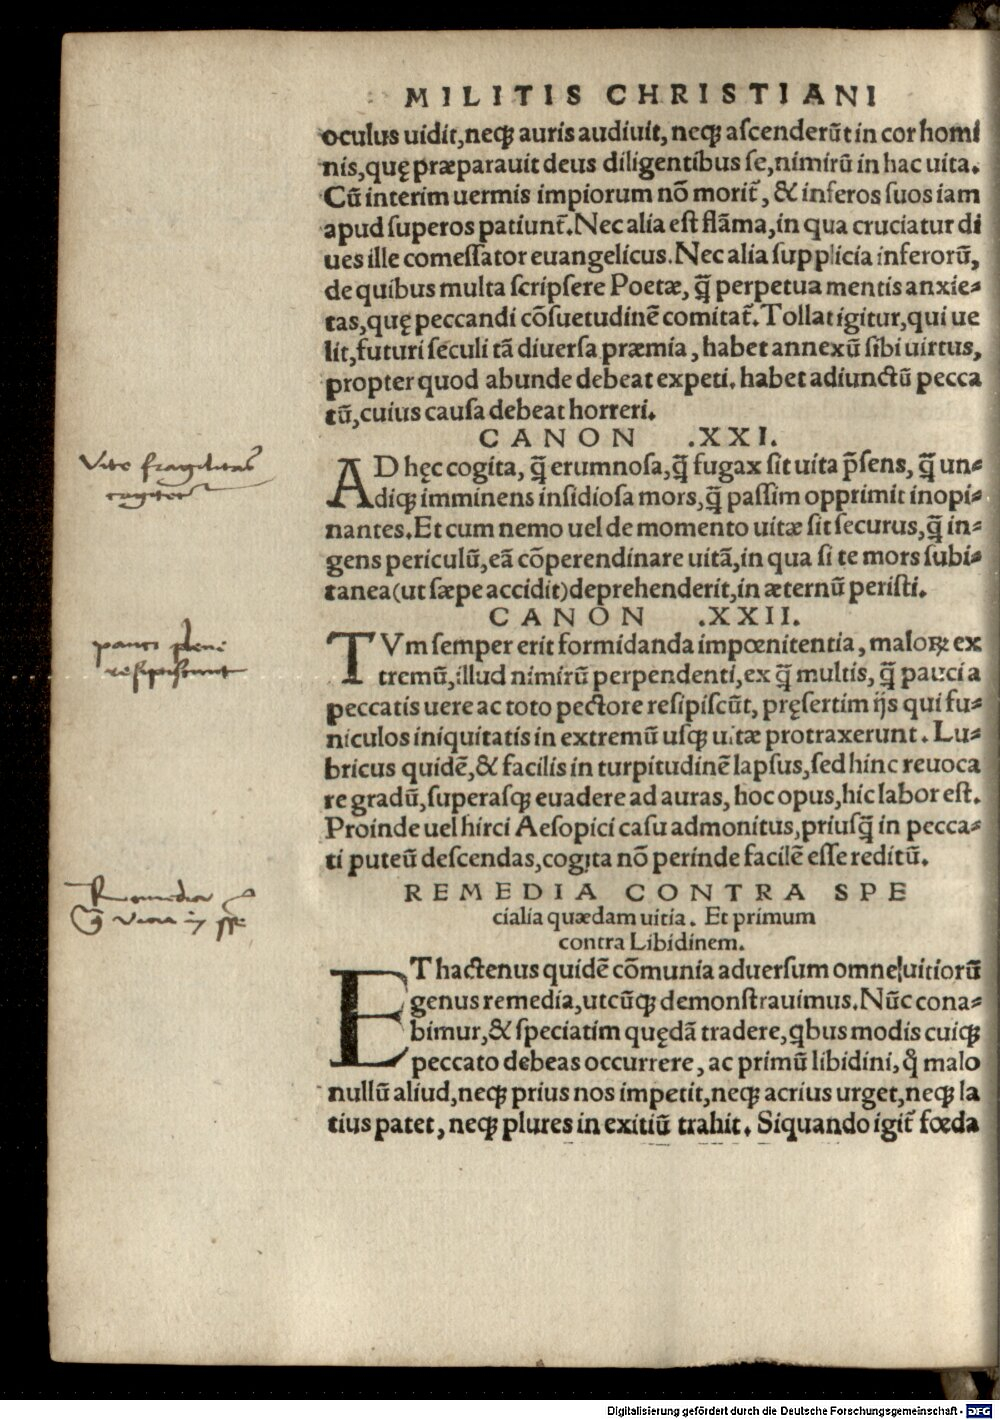 MILITIS CHRISTIANI
oculus uidit,neqꝫ auris audiuit, neqꝫ aſcenderūt in cor homi
nis,quę præparauit deus diligentibus ſe,nimirū in hac uita.
Cū interim uermis impiorum nō morit᷑, & inferos ſuos iam
apud ſuperos patiunt᷑. Nec alia eſt flāma,in qua cruciatur di
ues ille comeſſator euangelicus. Nec alia ſupplicia inferorū,
de quibus multa ſcripſere Poetæ, q̄ perpetua mentis anxie-
tas,quę peccandi cōſuetudinē comitat᷑. Tollat igitur,qui ue
lit,futuri ſeculi tā diuerſa præmia, habet annexū ſibi uirtus,
propter quod abunde debeat expeti. habet adiunctū pecca
tū,cuius cauſa debeat horreri.
CANON .XXI.
Vite fragilitas
cogitetur
AD hęc cogita, q̄ erumnoſa,q̄ fugax ſit uita p̄ſens, q̄ un-
diqꝫ imminens inſidioſa mors,q̄ paſſim opprimit inopi-
nantes. Et cum nemo uel de momento uitæ ſit ſecurus,q̄ in-
gens periculū,eā cōperendinare uitā,in qua ſi te mors ſubi-
tanea(ut ſæpe accidit)deprehenderit,in æternū periſti.
CANON .XXII.
pauci plene
resipiscunt
TVm ſemper erit formidanda impœnitentia, maloꝝ ex
tremū,illud nimirū perpendenti,ex q̄ multis, q̄ pauci a
peccatis uere ac toto pectore reſipiſcūt, pręſertim ijs qui fu-
niculos iniquitatis in extremū uſqꝫ uitæ protraxerunt. Lu-
bricus quidē,& facilis in turpitudinē lapſus,ſed hinc reuoca
re gradū,ſuperaſqꝫ euadere ad auras, hoc opus,hic labor eſt.
Proinde uel hirci Aeſopici caſu admonitus,priuſq̄ in pecca-
ti puteū deſcendas,cogita nō perinde facilē eſſe reditū.
REMEDIA CONTRA SPE
cialia quædam uitia. Et primum
contra Libidinem.
Remedia
ET hactenus quidē cōmunia aduerſum omne uitiorū
genus remedia,utcūqꝫ demonſtrauimus. Nūc cona-
bimur,& ſpeciatim quędā tradere,qbus modis cuiqꝫ
peccato debeas occurrere, ac primū libidini, q̊ malo
nullū aliud,neqꝫ prius nos impetit,neqꝫ acrius urget,neqꝫ la
tius patet, neqꝫ plures in exitiū trahit. Siquando igit᷑ fœda
Digitalisierung gefördert durch die Deutsche Forschungsgemeinschaft - DFG